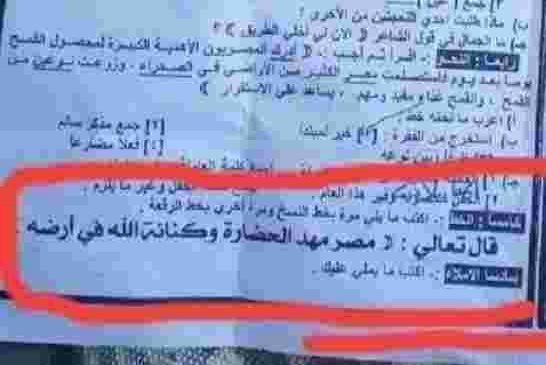 ب) ماذا كانت احدي النتيجتين من الأخرى ؟
جـ) ما الجمال في قول الشاعر ( الآن لي أخلي الطريق )؟
رابعا : النحو :- اقرأ ثم أجب : ( أدرك المصريون الأهمية الكبيرة لمحصول القمح
يوما بعد يوم فاستصلحت مصر الكثير من الأراضي في الصحراء ، وزرعت نوعين من
القمح ، والقمح غذاء مفيد ومهم ، يساعد علي الاستقرار )
أ) اعرب ما تحته خط
ب) استخرج من الفقرة : [١] خبر لمبتدأ [٢] جمع مذكر سالم
وبين نوعه [٤] فعلا مضارعا
وغير ما يلزم .
هذا العام .
خامسا : الخط :- اكتب ما يلي مرة بخط النسخ ومرة أخرى بخط الرقعة
قال تعالي : ( مصر مهد الحضارة وكنانة الله في أرضه
سادسا الاملاء :- اكتب ما يملي عليك .